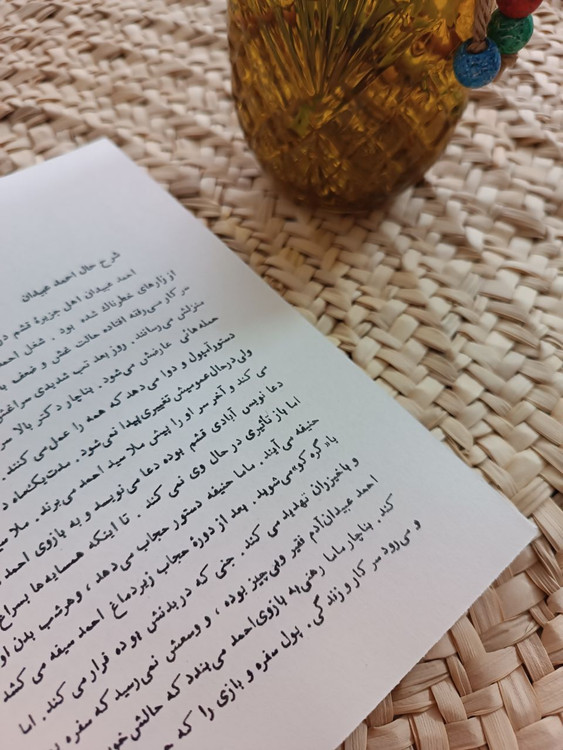 شرح حال احمد عبیدان
احمد عبیدان اهل جزیرهٔ قشم
از زارهای خطرناک شده بود . شغل احمد
سر کار می‌رفته افتاده حالت غش و ضعف
منزلش می‌رسانند . روز بعد تب شدیدی سراغش
حمله‌هائی عارضش می‌شود . بناچار دکتر بالا سر
دستور آمپول و دوا می‌دهد که همه را عمل می‌کنند .
ولی درحال عمومیش تغییری پیدا نمی‌شود . مدت یکماه
می کند و آخرسر او را پیش ملا سید احمد می‌برند . ملا
دعا نویس آبادی قشم بوده دعا می‌نویسد و به بازوی احمد
اما باز تأثیری در حال وی نمی کند . تا اینکه همسایه‌ها بسراغ
حنیفه می‌آیند . ماما حنیفه دستور حجاب می‌دهد ، وهرشب بدن او
باد گره کو» می‌شوید . بعد از دورهٔ حجاب زیر دماغ احمد سیفه می کنند
و باخیزران تهدید می کند . جنی که دربدنش بوده فرار می کند . اما
احمد عبیدان آدم فقیر وبی‌چیز بوده ، و وسعش نمی‌رسید که سفره
کند . بناچار ماما رهنی به بازوی احمد می‌بندد که حالش
و می‌رود سر کار و زندگی . پول سفره و بازی را که